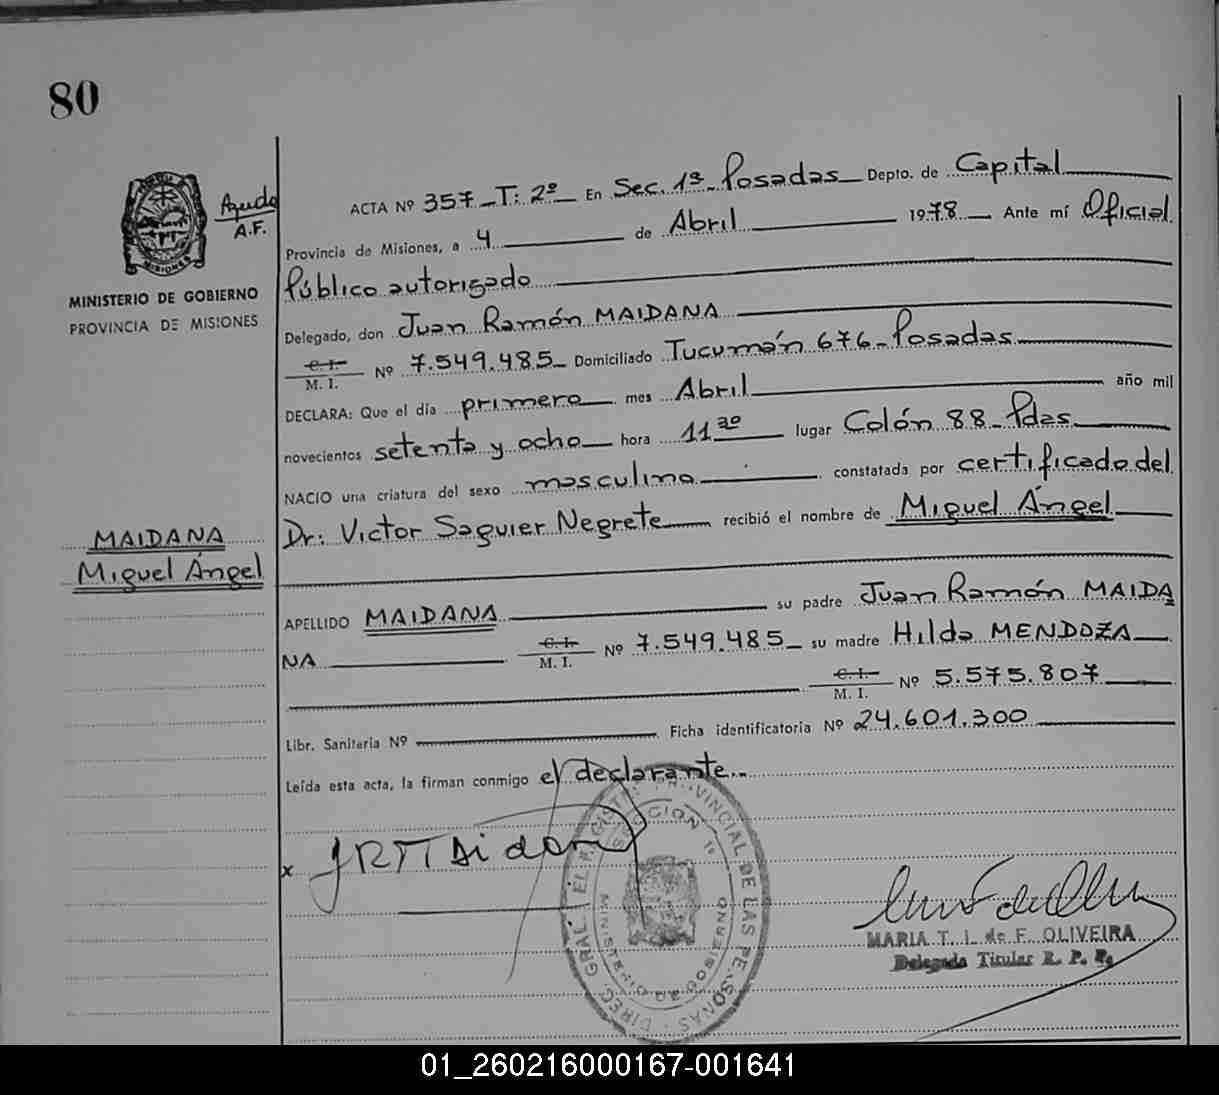 80
Ayuda
A.F.
MINISTERIO DE GOBIERNO
PROVINCIA DE MISIONES
ACTA Nº 357 - T: 2º - En Sec. 1ª - Posadas - Depto. de Capital
Provincia de Misiones, a 4 de Abril 1978 - Ante mí Oficial
Público autorizado
Delegado, don Juan Ramón MAIDANA
C. I.
M. I. Nº 7.549.485 - Domiciliado Tucumán 676 - Posadas
DECLARA: Que el día primero mes Abril año mil
novecientos setenta y ocho hora 11 30 lugar Colón 88 - Pdas.
NACIO una criatura del sexo masculino constatada por certificado del
Dr: Victor Saguier Negrete recibió el nombre de Miguel Ángel
MAIDANA
Miguel Ángel
APELLIDO MAIDANA su padre Juan Ramón MAIDA
NA C. I.
M. I. Nº 7.549.485 - su madre Hilda MENDOZA
C. I.
M. I. Nº 5.575.807
Libr. Sanitaria Nº Ficha identificatoria Nº 24.601.300
Leída esta acta, la firman conmigo el declarante..
x JRMaidana
DIREC. GRAL. DEL REGISTRO PROVINCIAL DE LAS PERSONAS
SECCION 1ª
MINISTERIO DE GOBIERNO
MARIA T. I. de F. OLIVEIRA
Delegada Titular R. P. P.
01_260216000167-001641